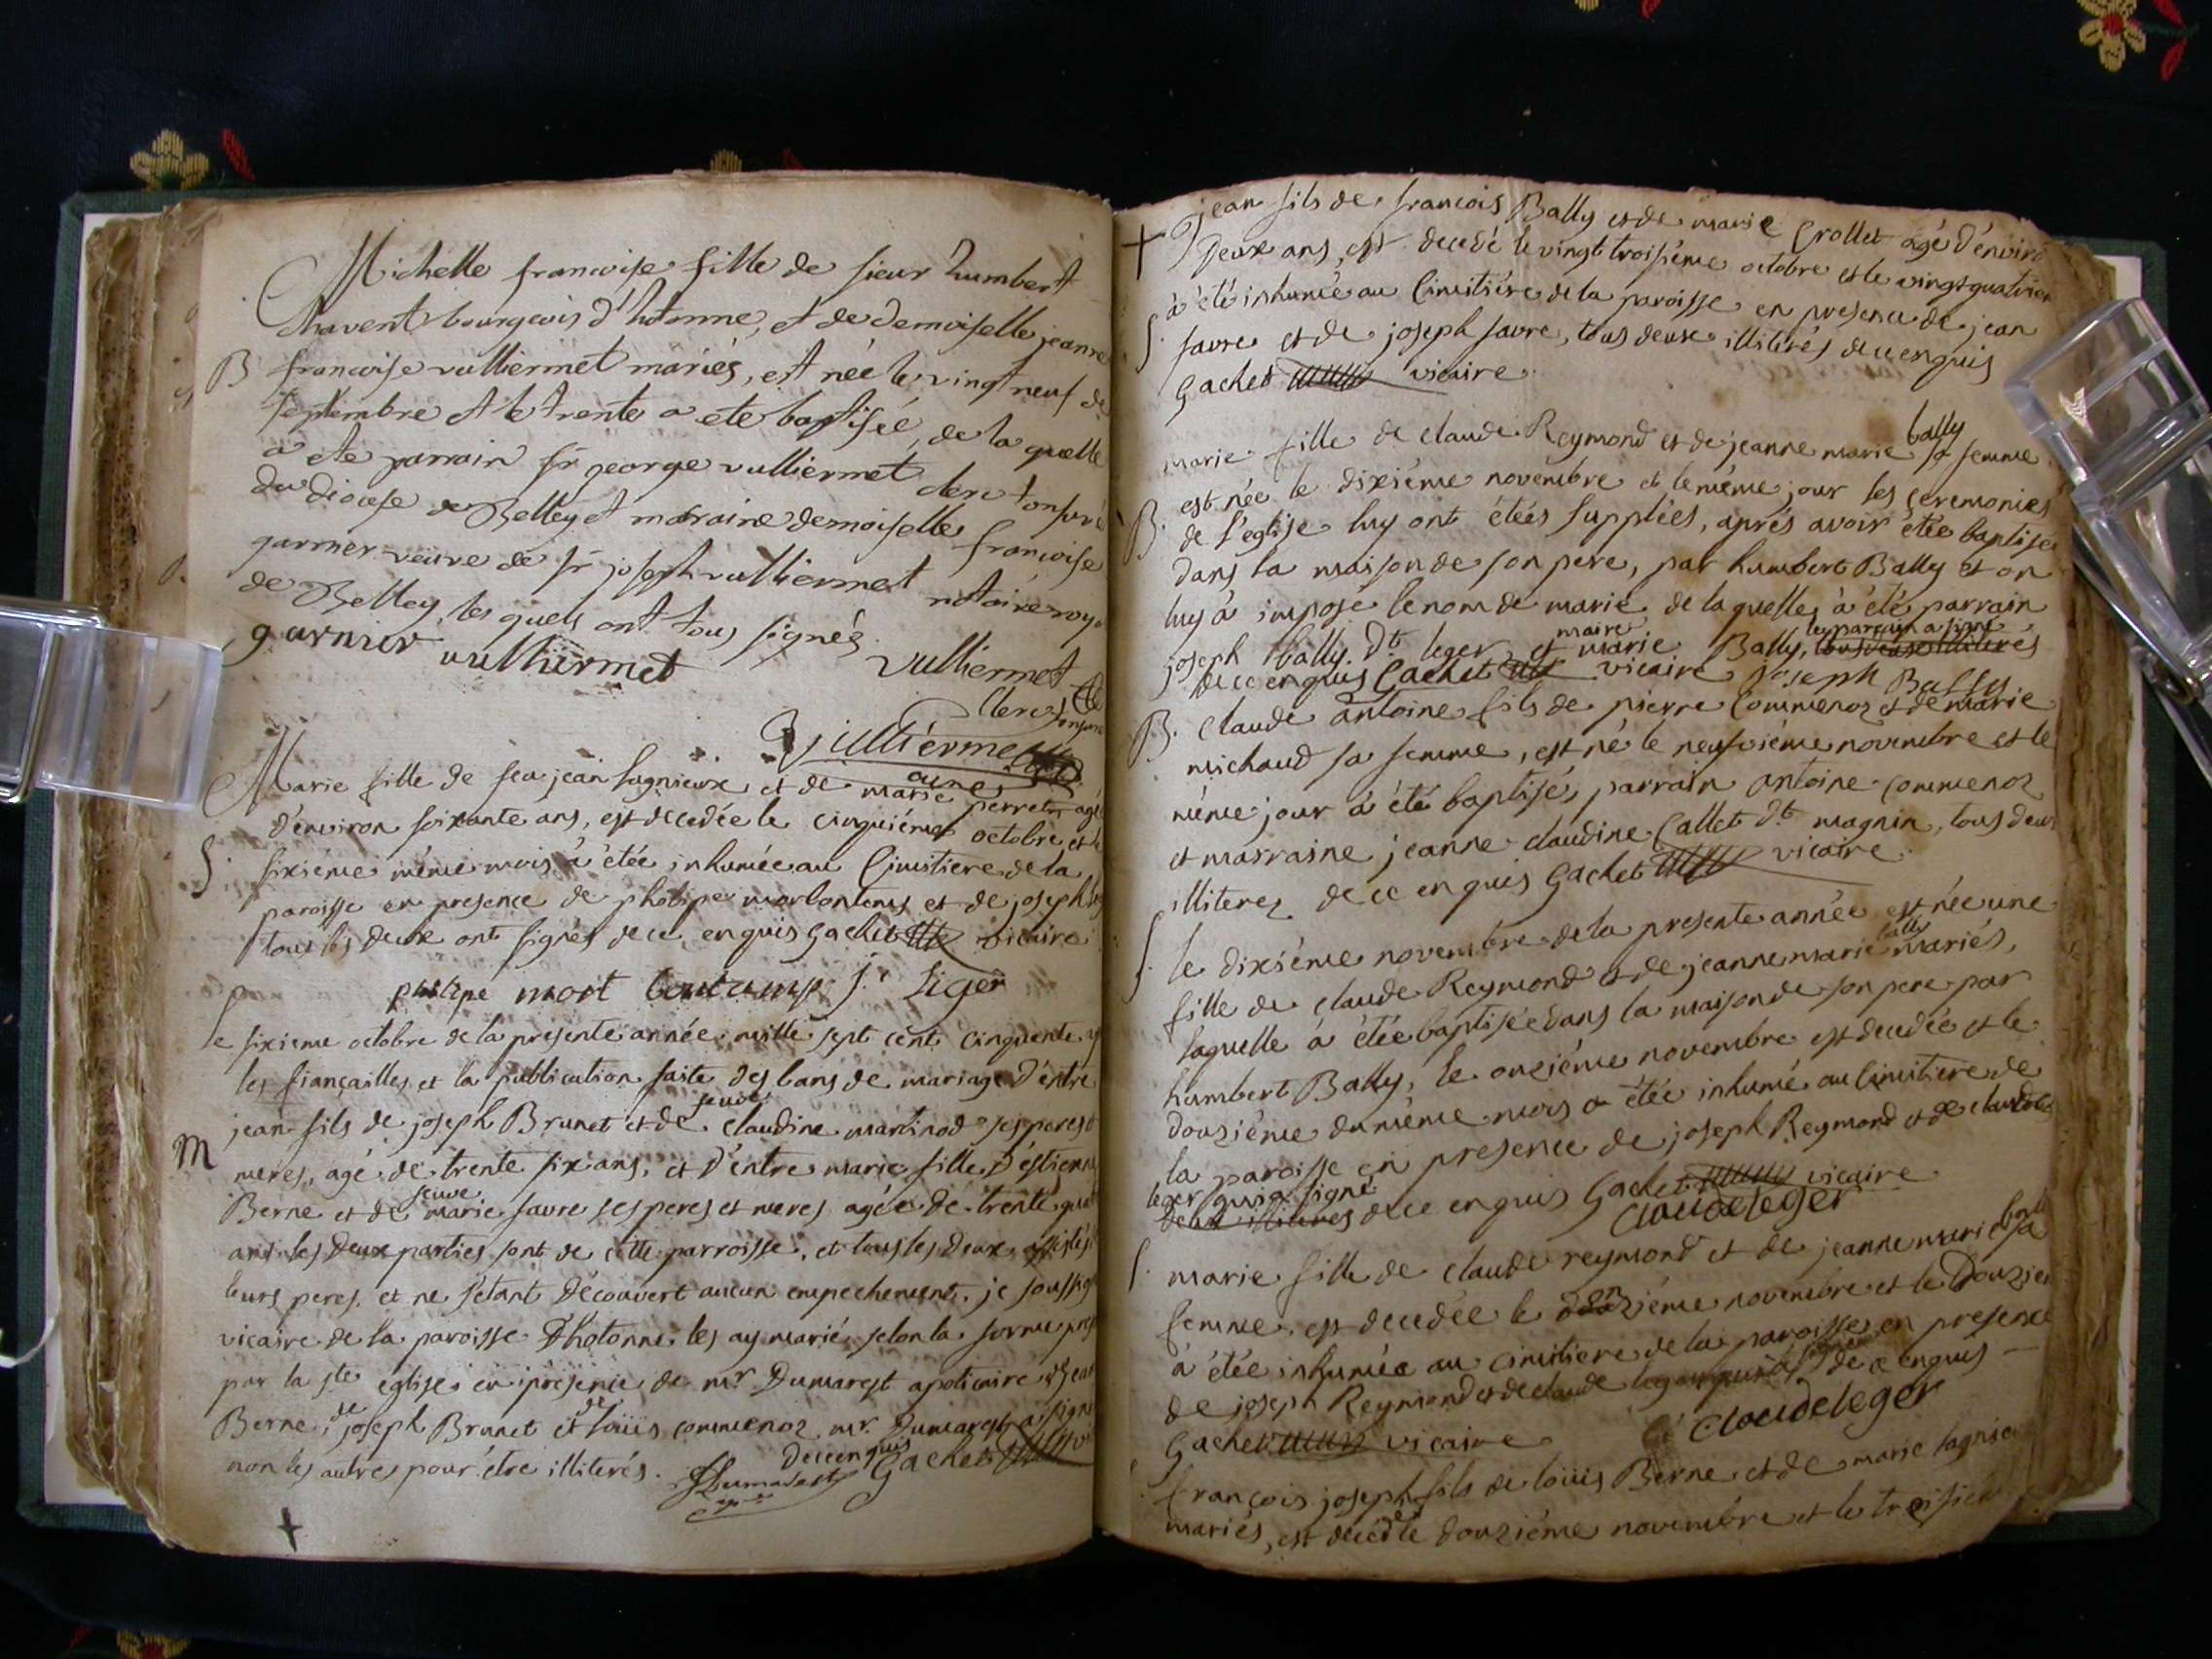 Michelle francoise fille de sieur humbert
Chavent bourgeois d'hotonne, et de demoiselle jeanne
B francoise vulliermet mariés, est née le vingt neuf de
septembre et le trente a ete baptisée, de la quelle
a ete parrain sr george vulliermet clerc tonsuré
du diocese de Belley et maraine demoiselle francoise
garnier veuve de sr joseph vulliermet notaire roya
de Belley, les quels ont tous signés
garnier vulliermet vulliermet
clerc tonsuré
Vulliermet
ainé
Marie fille de feu jean sagnieux et de marie perret, agé
d'environ soixante ans, est decedée le cinquiéme octobre et le
S. sixiéme même mois à étée inhumée au Cimitiere de la
paroisse en presence de philipe morlontems et de joseph
tous les deux ont signés de ce enquis Gachet vicaire
philipe mort bontamps j. liger
le sixieme octobre de la presente année mille sept cent cinquante
les fiançailles et la publication faite des bans de mariage d'entre
jean fils de joseph Brunet et de feuë claudine martinod ses peres et
M meres, agé de trente six ans, et d'entre marie fille d'estienne
Berne et de feuve marie favre ses peres et meres agée de trente quat
ans les deux parties sont de cette parroisse, et tous les deux assistés
leurs peres, et ne s'etant découvert aucun empechement, je soussig
vicaire de la paroisse d'hotonne les ay marié selon la forme pres
par la ste eglise, en presence de mr Dumarest apoticaire de jean
Berne, de joseph Brunet et de loüis commenoz mr. Dumarest a signé
non les autres pour être illiterés. de ce enquis Gachet
Dumarest
+
+ jean fils de francois Bally et de marie Crollet agé d'enviro
deux ans, est decedé le vingt troisiéme octobre et le vingt quatriem
à été inhumé au Cimitiére de la paroisse en presence de jean
S. favre et de joseph favre, tous deux illiterés de ce enquis
Gachet vicaire
marie fille de claude Reymond et de jeanne marie bally sa femme
est née le dixiéme novembre et le même jour les ceremonies
B. de l'eglise luy ont étées supplées, aprés avoir étée baptisée
dans la maison de son pere, par humbert Bally et on
luy à imposé le nom de marie de la quelle à été parrain
joseph bally dt leger et maire marie Bally, le parrain a signé tous deux illiterés
de ce enquis Gachet vicaire joseph Bally
B. Claude antoine fils de pierre Commenoz et de marie
michaud sa femme, est né le neufviéme novembre et le
même jour à été baptisé, parrain antoine commenoz
et marraine jeanne claudine Callet dt magnin, tous deux
illiterez de ce enquis Gachet vicaire
S. le dixiéme novembre de la presente année est née une
fille de claude Reymond et de jeanne marie bally mariés,
laquelle à étée baptisée dans la maison de son pere par
humbert Bally, le onziéme novembre est decedée et le
douziéme du même mois a étée inhumé au Cimitiere de
la paroisse en presence de joseph Reymond et de claude
leger qui a signé
deux illiteres de ce enquis Gachet vicaire
Claude leger
S. marie fille de claude reymond et de jeanne marie bally sa
femme, est decedée le onziéme novembre et le douziem
à étée inhumée au cimitiere de la paroisse en presence
de joseph Reymond et de claude leger qui a signé de ce enquis
Gachet vicaire Cl Claude leger
françois joseph fils de loüis Berne et de marie sagnie
mariés, est decedé le douziéme novembre et le treisiem